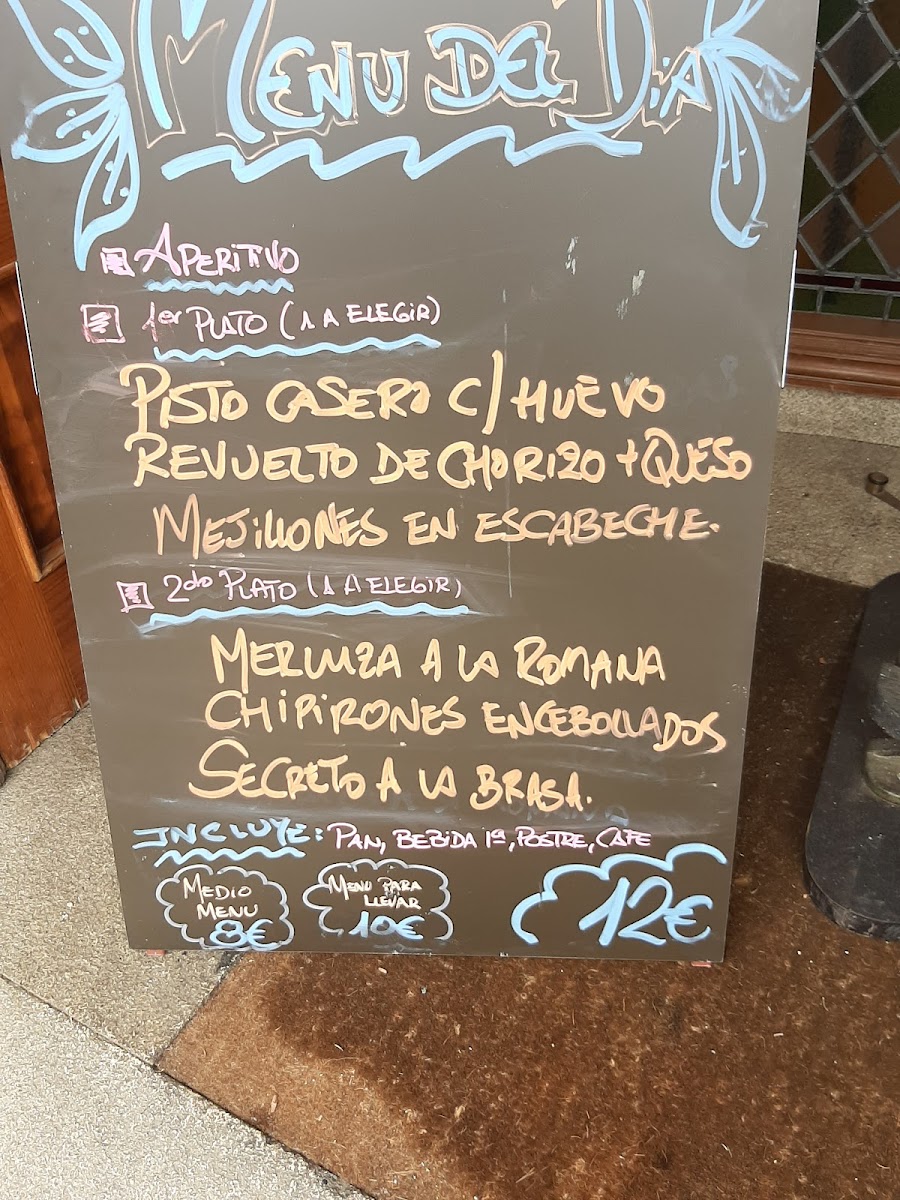 MENU DEL DIA
APERITIVO
1er PLATO (1 A ELEGIR)
PISTO CASERO C/ HUEVO
REVUELTO DE CHORIZO + QUESO
MEJILLONES EN ESCABECHE.
2do PLATO (1 A ELEGIR)
MERLUZA A LA ROMANA
CHIPIRONES ENCEBOLLADOS
SECRETO A LA BRASA.
INCLUYE: PAN, BEBIDA 1ª, POSTRE, CAFE
MEDIO
MENU
8€
MENU PARA
LLEVAR
10€
12€